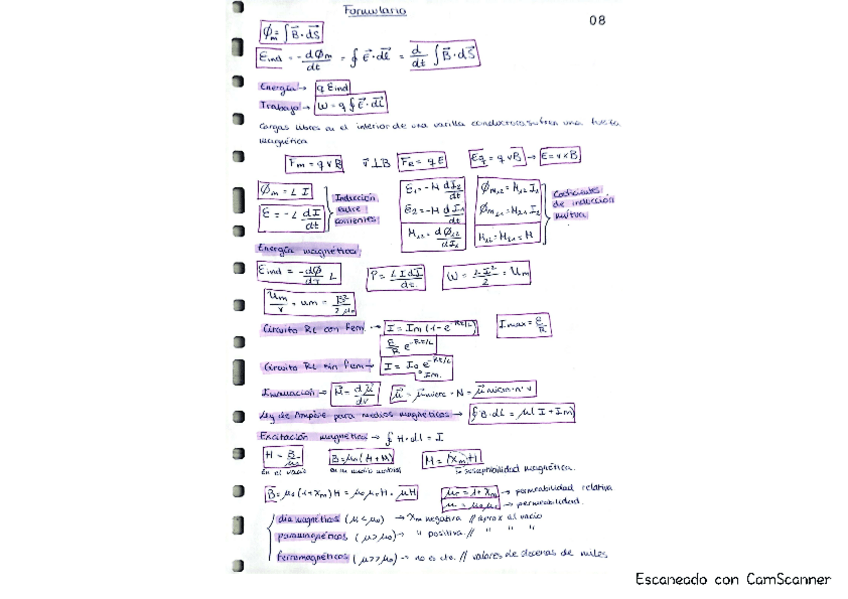 Formulario
08
Φm = ∫ B⃗ · dS⃗
Eind = - dΦm/dt = ∮ E⃗ · dl⃗ = d/dt ∫ B⃗ · dS⃗
Energía → q Eind
Trabajo → W = q ∮ E⃗ · dl⃗
Cargas libres en el interior de una varilla conductora sufren una fuerza
magnética
Fm = q v B v⃗ ⊥ B FE = q E Eq = q v B → E = v × B
Φm = L I
E = -L dI/dt
Inducción entre corrientes
E1 = -M dI2/dt
E2 = -M dI1/dt
Φm12 = M12 I2
Φm21 = M21 I2
Coeficientes de inducción mutua
M12 = dΦ12/dI2
M12 = M21 = M
Energía magnética
Eind = -dΦ/dt L P = L I dI/dt W = L I²/2 = Um
Um/V = um = B²/2μ0
Circuito RL con fem → I = Im (1 - e^-Rt/L) Imax = E/R
E/R e^-Rt/L
Circuito RL sin fem → I = I0 e^-Rt/L
Im.
Imanación → M⃗ = dμ⃗/dv
Ley de Ampère para medios magnéticos → ∮ B · dl = μ( I + Im)
Excitación magnética → ∮ H · dl = I
H = B/μ0 B = μ0 (H + M) M = Xm H
en el vacío
susceptibilidad magnética.
B⃗ = μ0 (1 + Xm) H = μ0 μr H = μH μr = 1 + Xm → permeabilidad relativa
μ = μ0 μr → permeabilidad.
diamagnéticos (μ < μ0) → Xm negativa // aprox al vacío
paramagnéticos (μ > μ0) → " positiva // " " "
ferromagnéticos (μ >> μ0) → no es cte. // valores de decenas de miles
Escaneado con CamScanner